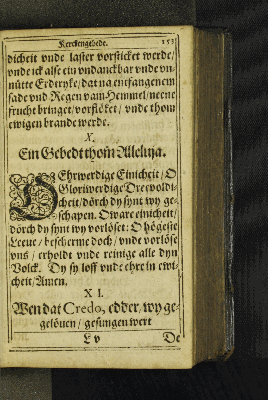 Kerckengebede. 153
dicheit vnde laster vorsticket werde/
vnde ick alse ein vndanckbar vnde vn-
nütte Erdtryke/ dat na entfangenem
sade vnd Regen vam Hemmel/ neene
frucht bringet/ vorflöket/ vnde thom
ewigen brande werde.
X.
Ein Gebedt thom Alleluja.
O Ehrwerdige Einicheit/ O
Gloriwerdige Dreevoldi-
cheit/ dörch dy synt wy ge-
schapen. O ware einicheit/
dörch dy synt wy vorlöset: O högeste
Leeue/ bescherme doch/ vnde vorlöse
vns/ erholdt vnde reinige alle dyn
Volck. Dy sy loff vnde ehre in ewi-
cheit/ Amen.
XI.
Wen dat Credo, edder, wy ge-
gelöuen/ gesungen wert
L v De